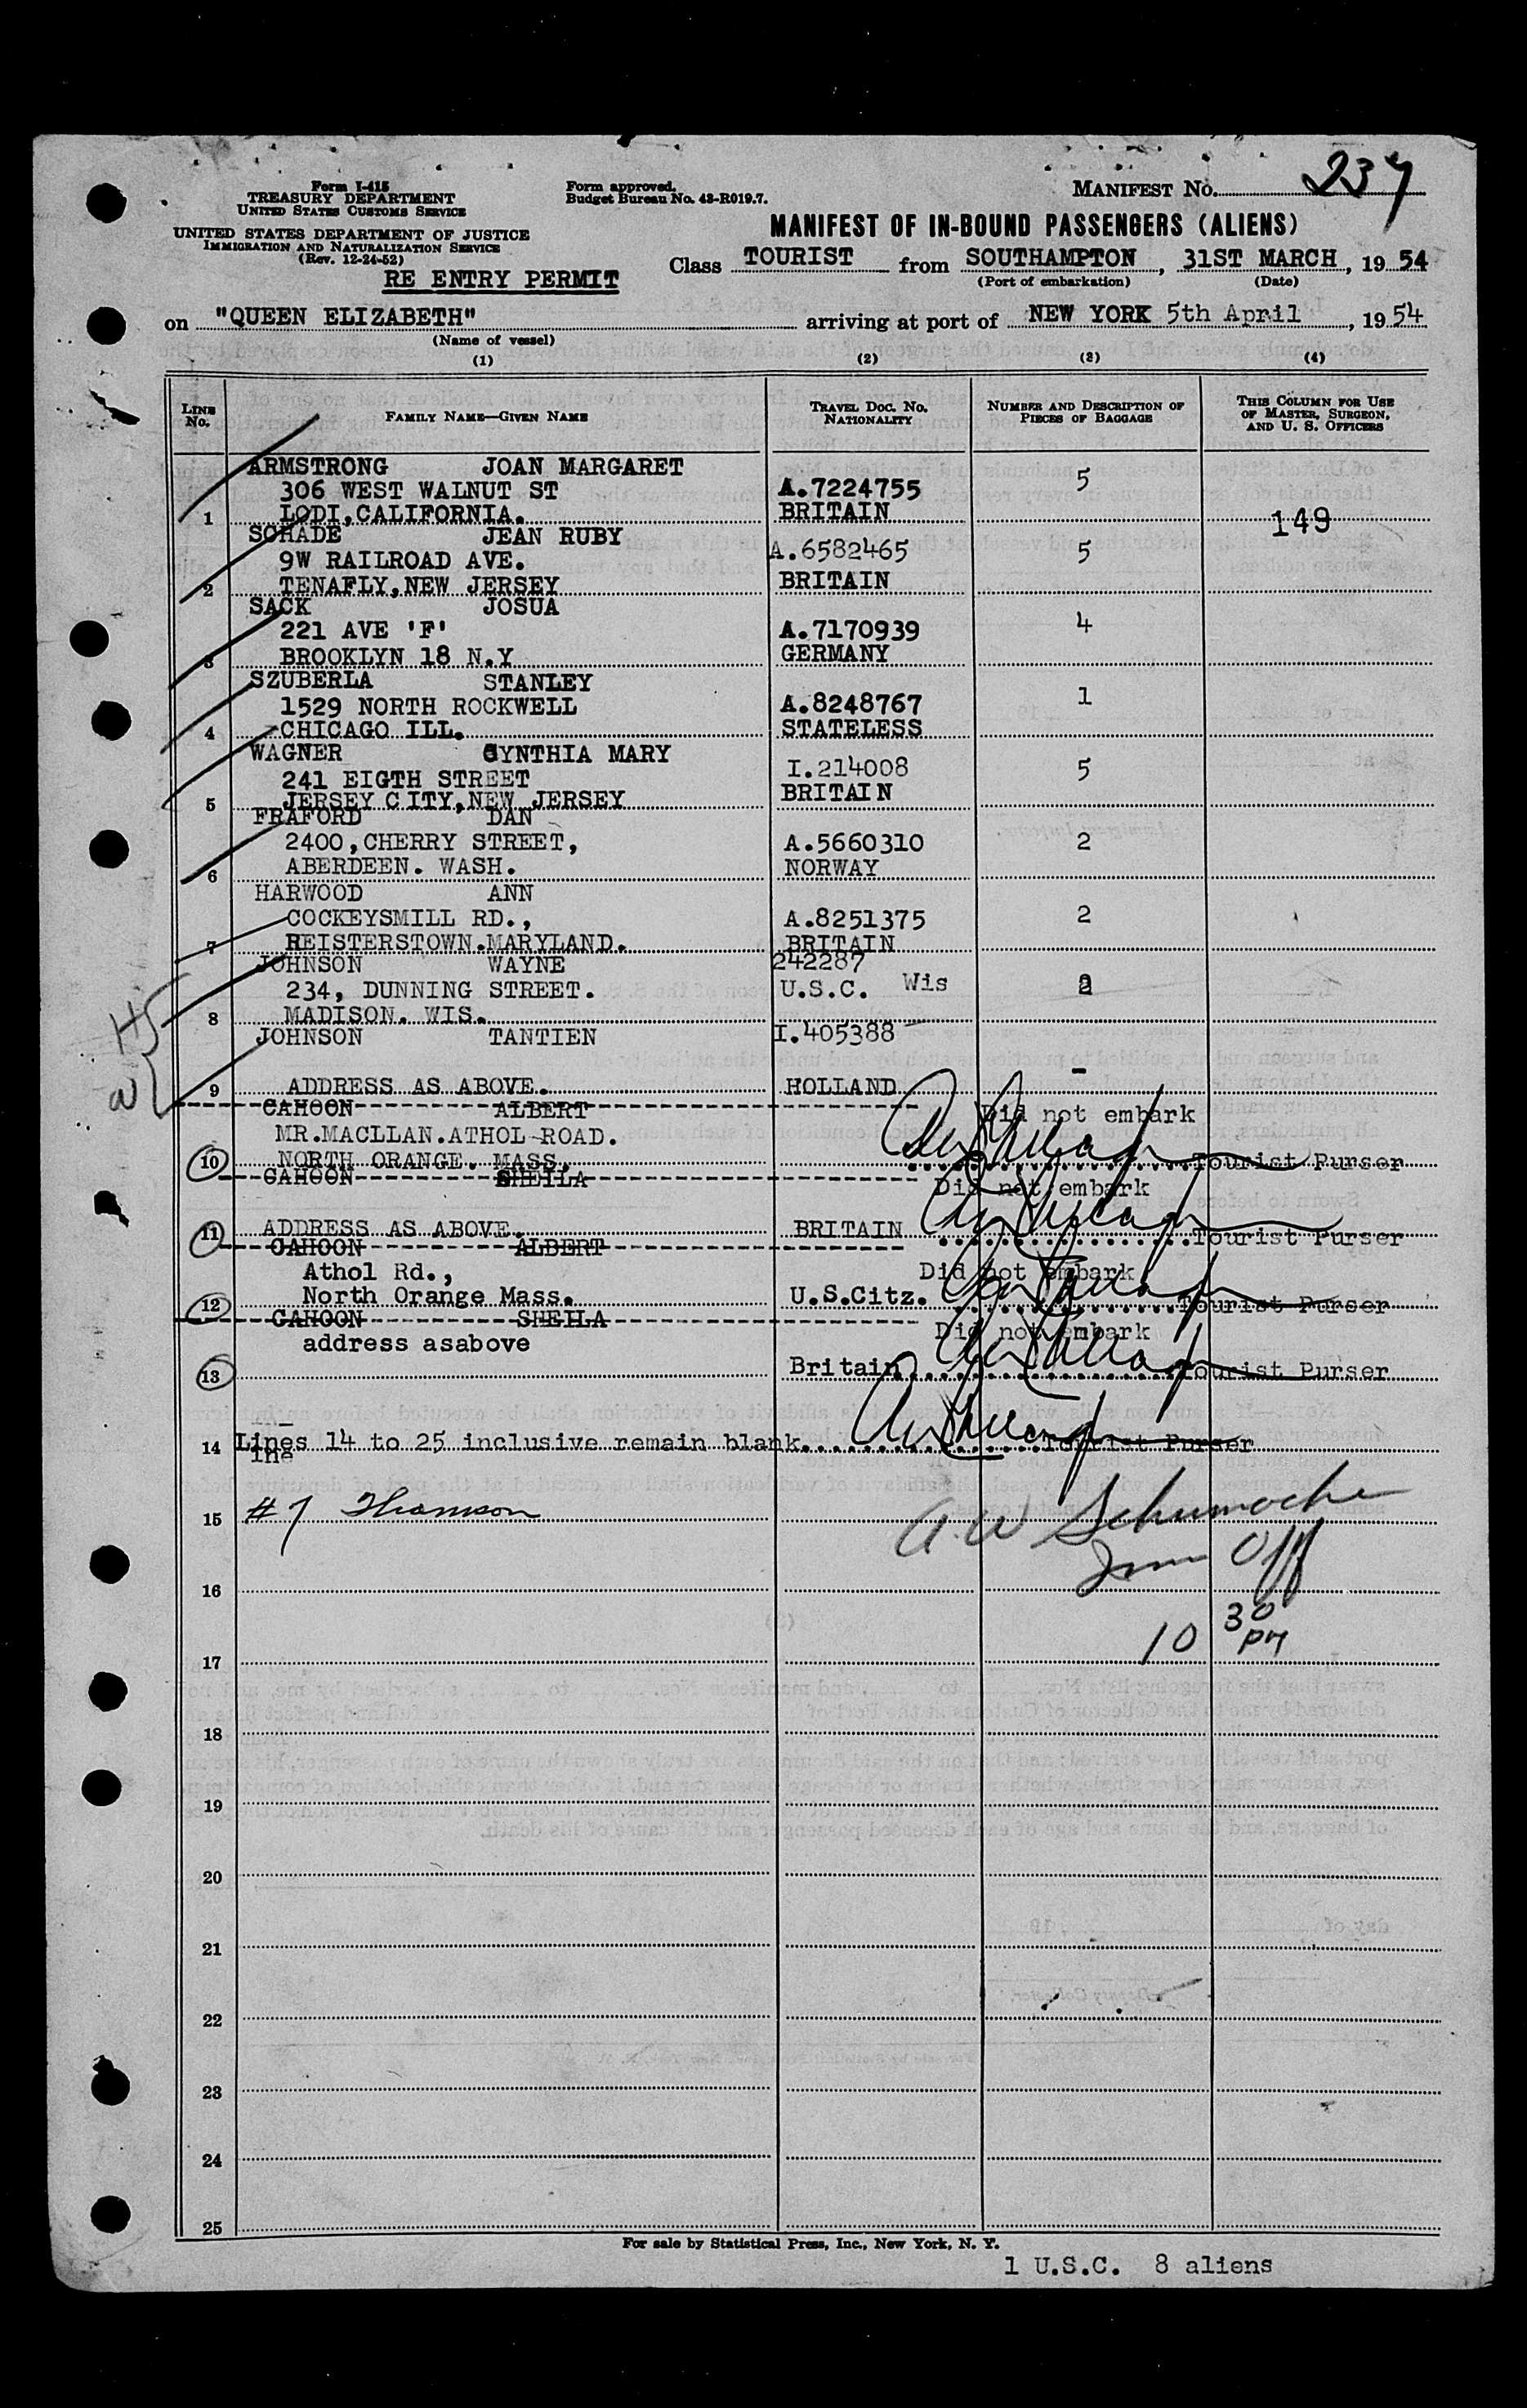 237
Form I-415
TREASURY DEPARTMENT
UNITED STATES CUSTOMS SERVICE
UNITED STATES DEPARTMENT OF JUSTICE
IMMIGRATION AND NATURALIZATION SERVICE
(Rev. 12-24-52)
RE ENTRY PERMIT
Form approved.
Budget Bureau No. 43-R019.7.
MANIFEST No.
MANIFEST OF IN-BOUND PASSENGERS (ALIENS)
Class TOURIST from SOUTHAMPTON, 31ST MARCH, 19 54
(Port of embarkation) (Date)
on "QUEEN ELIZABETH" arriving at port of NEW YORK 5th April, 19 54
(Name of vessel)
(1) (2) (3) (4)
LINE No. FAMILY NAME—GIVEN NAME TRAVEL DOC. NO. NATIONALITY NUMBER AND DESCRIPTION OF PIECES OF BAGGAGE THIS COLUMN FOR USE OF MASTER, SURGEON, AND U. S. OFFICERS
ARMSTRONG JOAN MARGARET
306 WEST WALNUT ST A.7224755 5
1 LODI,CALIFORNIA. BRITAIN 149
SCHADE JEAN RUBY
9W RAILROAD AVE. A.6582465 5
2 TENAFLY,NEW JERSEY BRITAIN
SACK JOSUA
221 AVE 'F' A.7170939 4
3 BROOKLYN 18 N.Y GERMANY
SZUBERLA STANLEY
1529 NORTH ROCKWELL A.8248767 1
4 CHICAGO ILL. STATELESS
WAGNER CYNTHIA MARY
241 EIGTH STREET I.214008 5
5 JERSEY CITY,NEW JERSEY BRITAIN
FRAFORD DAN
2400,CHERRY STREET, A.5660310 2
6 ABERDEEN. WASH. NORWAY
HARWOOD ANN
COCKEYSMILL RD., A.8251375 2
7 REISTERSTOWN.MARYLAND. BRITAIN
JOHNSON WAYNE 242287
234, DUNNING STREET. U.S.C. Wis 2
8 MADISON. WIS.
JOHNSON TANTIEN I.405388
9 ADDRESS AS ABOVE. HOLLAND -
CAHOON ALBERT Did not embark
MR.MACLLAN.ATHOL ROAD.
10 NORTH ORANGE. MASS. Tourist Purser
CAHOON SHEILA Did not embark
11 ADDRESS AS ABOVE. BRITAIN Tourist Purser
CAHOON ALBERT
Athol Rd., Did not embark
12 North Orange Mass. U.S.Citz. Tourist Purser
CAHOON SHEILA Did not embark
address asabove
13 Britain Tourist Purser
14 Lines 14 to 25 inclusive remain blank. Tourist Purser
ine
15 #7 Thomson A.W Schumacher
Imm Off
16
10 30 PM
17
18
19
20
21
22
23
24
25
For sale by Statistical Press, Inc., New York, N. Y.
1 U.S.C. 8 aliens